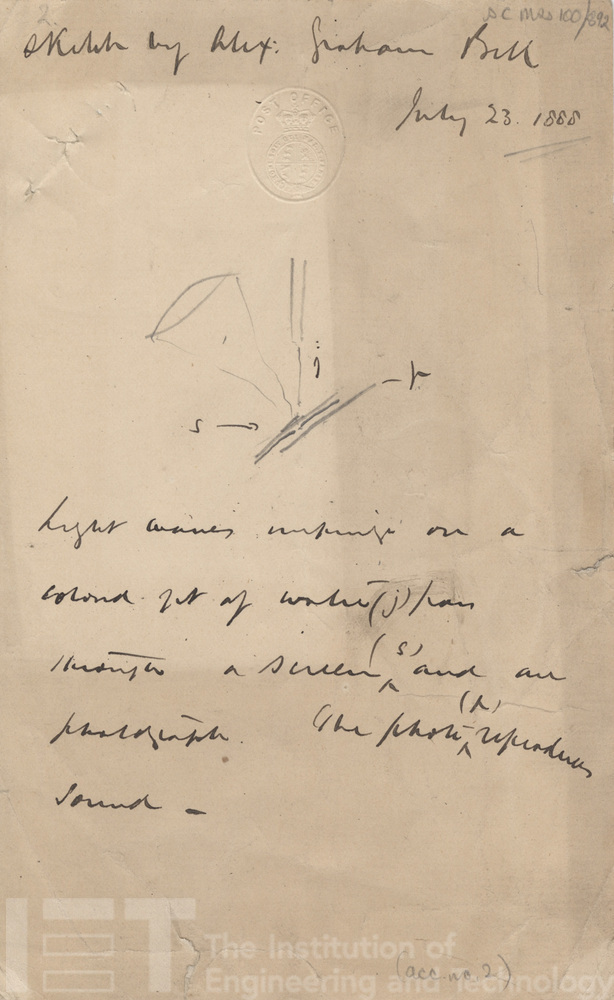 2.
SC MSS 100/892
Sketch by Alex. Graham Bell
July 23. 1888
POST OFFICE
j
p
s
Light waves impinge on a
colored jet of water (j) pass
through a screen (s) and are
photograph. The photo (p) reproduces
sound –
(acc. no. 2)
IET The Institution of
Engineering and Technology